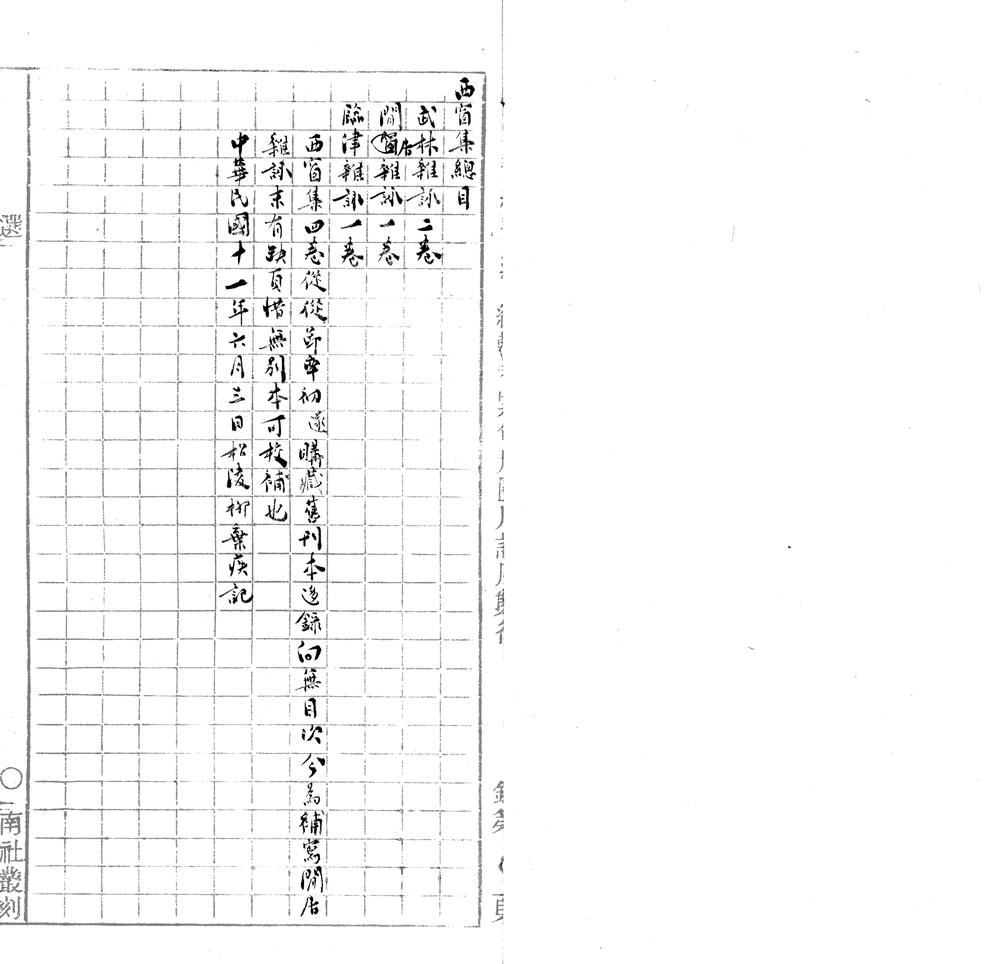 西窗集總目
武林雜詠二卷
閒居雜詠一卷
臨津雜詠一卷
西窗集四卷從從弟率初遂購藏舊刊本迻錄向無目次今爲補寫閒居
雜詠末有缺頁惜無別本可校補也
中華民國十一年六月三日松陵柳棄疾記
選 〇 南社叢刻